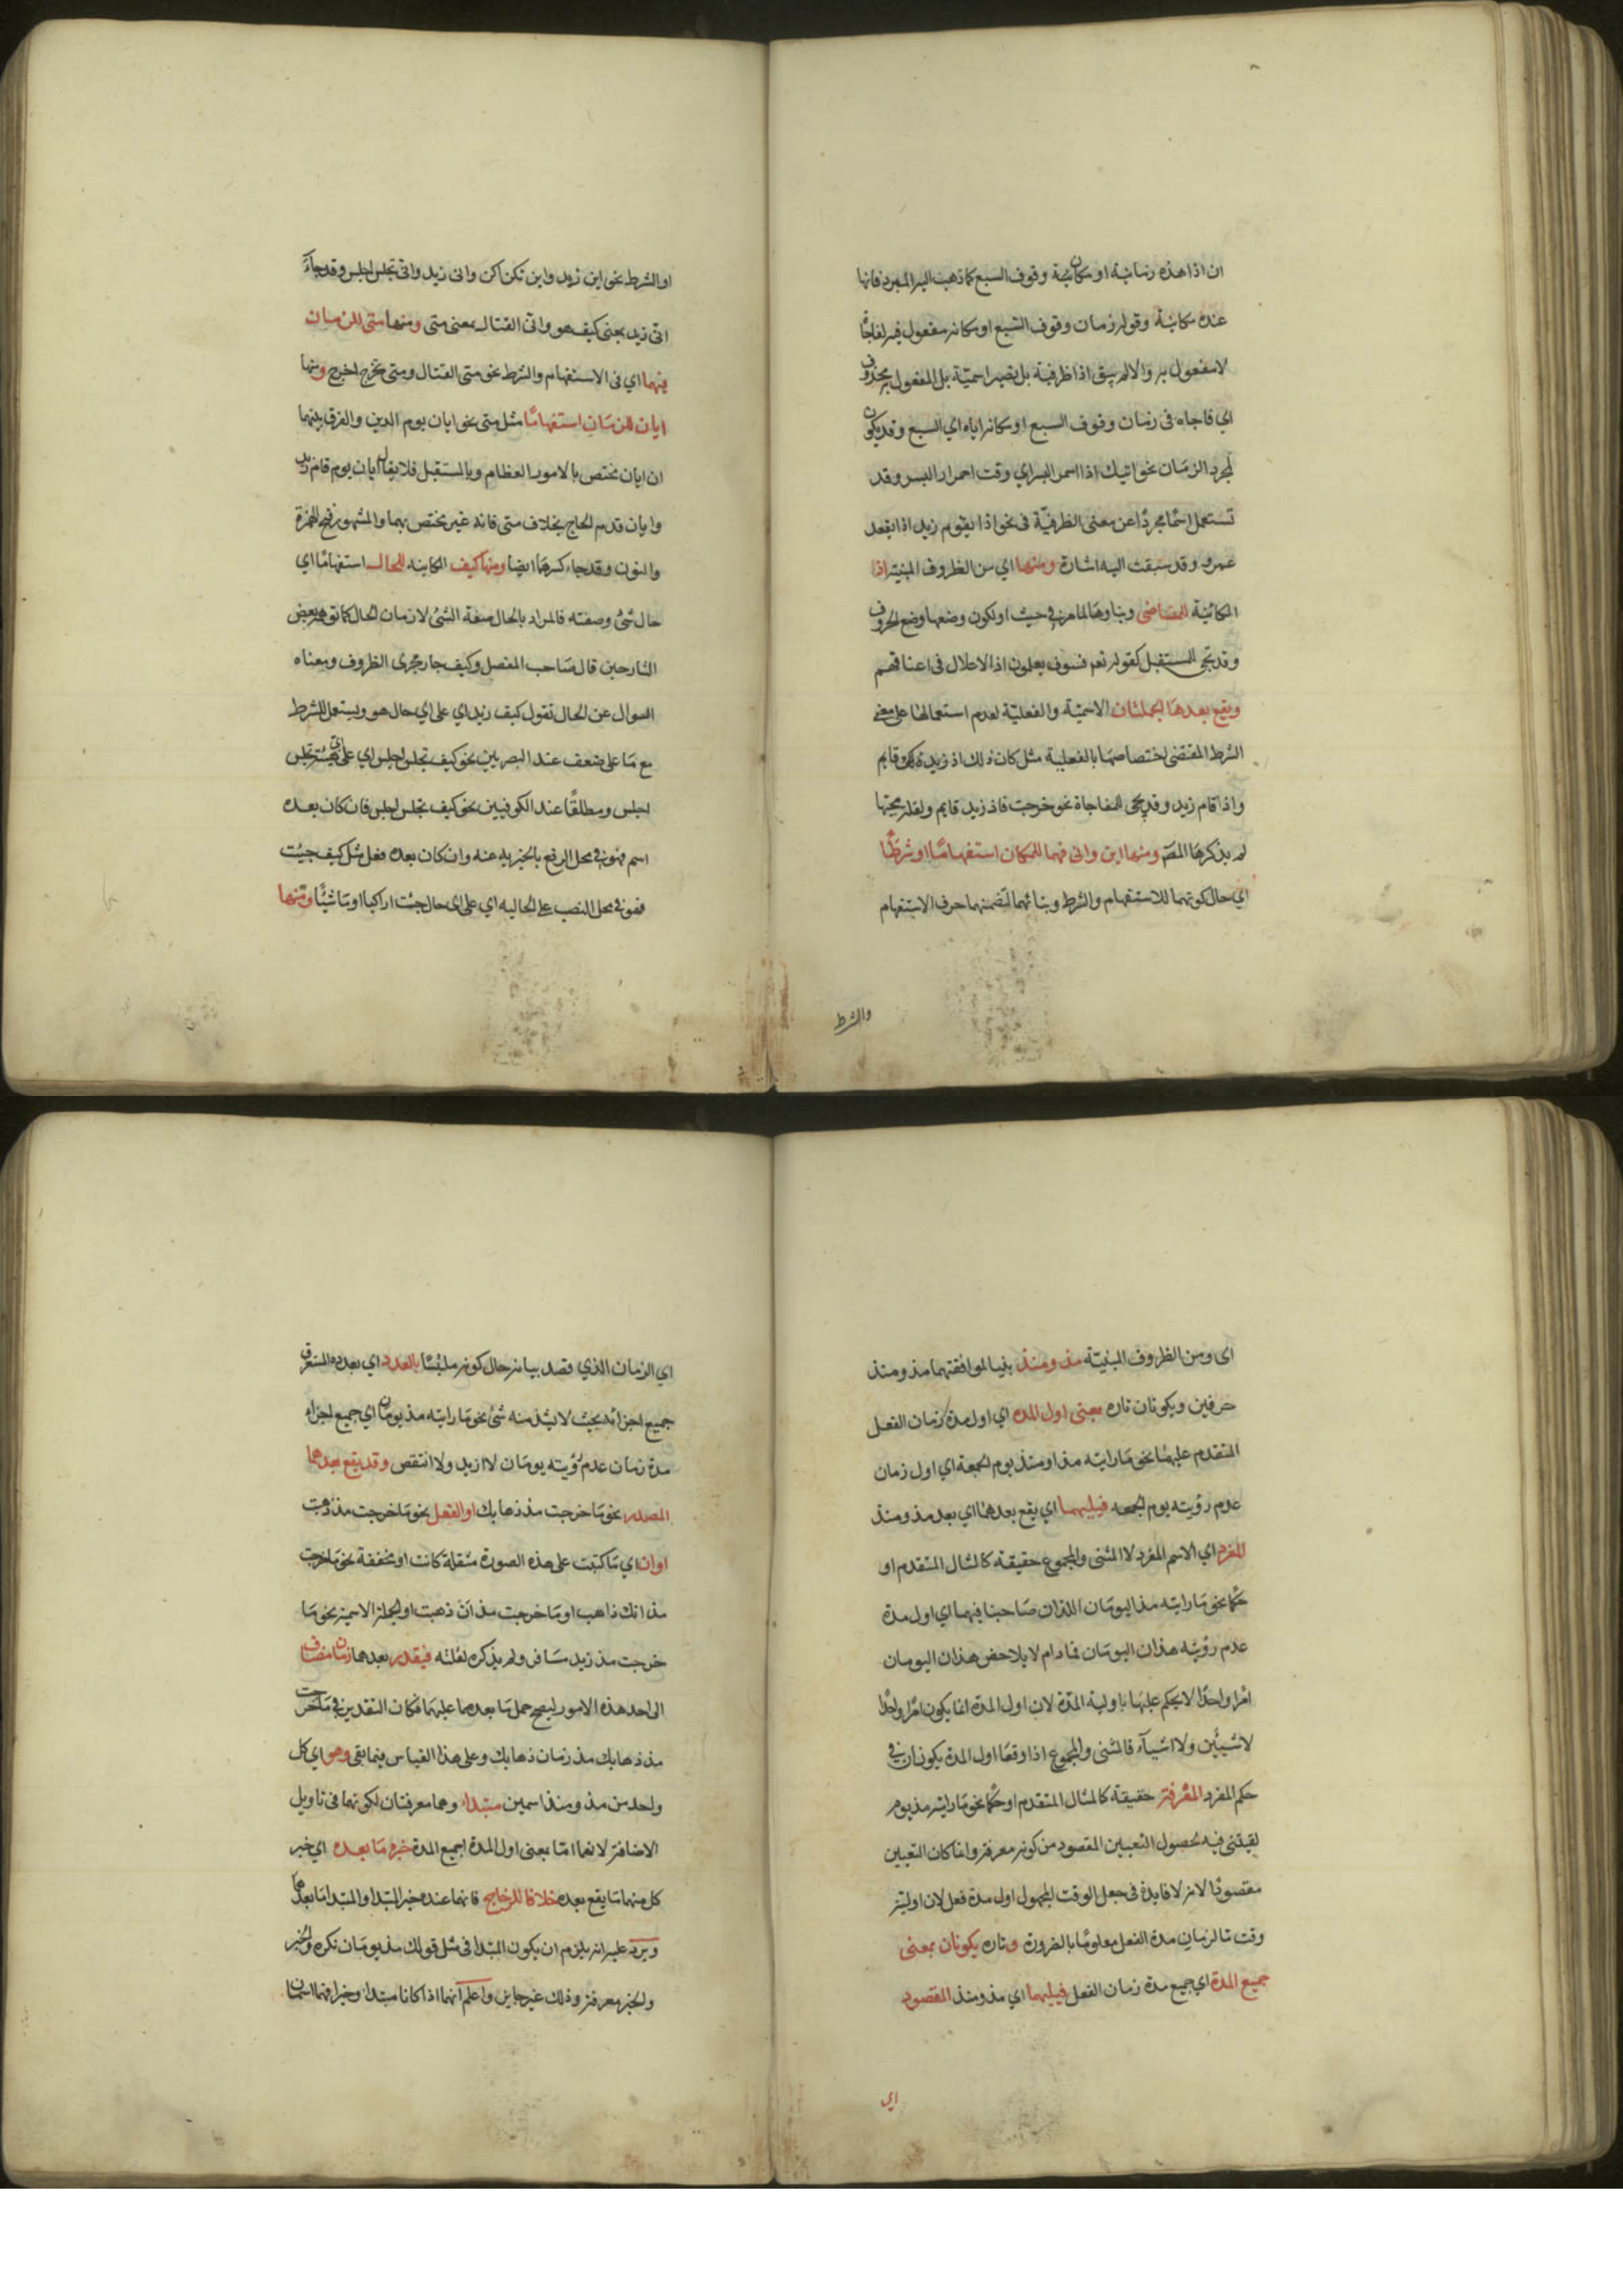 ان اذا هذه زمانية او مكانية وقوف السبع كما ذهب اليه المبرد فانها
عنده مكانية وقوله زمان وقوف السبع او مكانه مفعول فيه لفاجأ
لا مفعول به والا لم يبق اذا ظرفية بل يصير اسمية بل المفعول به محذوف
اي فاجاه في زمان وقوف السبع او مكانه اياه اي السبع وقد يكون
لمجرد الزمان نحو اتيك اذا احمر البسر اي وقت احمرار البسر وقد
تستعمل اسمًا مجردًا عن معنى الظرفية في نحو اذا يقوم زيد اذا يقعد
عمرو وقد سبقت اليه اشارة ومنها اي من الظروف المبنية اذ
الكائنة للماضي وبناوها لما مر في حيث او لكون وضعها وضع الحروف
وقد تجي للمستقبل كقوله تعم فسوف يعلمون اذ الاغلال في اعناقهم
ويقع بعدها الجملتان الاسمية والفعلية لعدم استعمالها على معنى
الشرط المقتضي اختصاصها بالفعلية مثل كان ذلك اذ زيد قايم
واذا قام زيد وقد يجي للمفاجاة نحو خرجت فاذ زيد قايم ولقلة مجيئها
لم يذكرها المصـ ومنها اين وانى فهما للمكان استفهامًا او شرطًا
اي حال كونهما للاستفهام والشرط وبنائهما لتضمنهما حرف الاستفهام
والشرط
او الشرط نحو اين زيد واين تكن اكن وانى زيد وانى تجلس اجلس وقد جاء
انى زيد بمعنى كيف هو وانى القتال بمعنى متى ومنها متى للزمان
فيهما اي في الاستفهام والشرط نحو متى القتال ومتى تخرج اخرج ومنها
ايان للزمان استفهامًا مثل متى نحو ايان يوم الدين والفرق بينهما
ان ايان مختص بالامور العظام وبالمستقبل فلا يقال ايان يوم قام زيد
وايان قدم الحاج بخلاف متى فانه غير مختص بهما والمشهور فتح الهمزة
والنون وقد جاء كسرهما ايضا ومنها كيف الكاينه للحال استفهامًا اي
حال شئ وصفته فالمراد بالحال صفة الشئ لا زمان الحال كما توهم بعض
الشارحين قال صاحب المفصل وكيف جار مجرى الظروف ومعناه
السوال عن الحال تقول كيف زيد اي على اي حال هو ويستعمل للشرط
مع ما على ضعف عند البصريين نحو كيف تجلس اجلس اي على اي هيئة تجلس
اجلس ومطلقًا عند الكوفيين نحو كيف تجلس اجلس فان كان بعده
اسم فهو في محل الرفع بالخبرية عنه وان كان بعده فعل مثل كيف جيئت
فهو في محل النصب على الحاليه اي على اي حال جئت اراكبا او ماشيًا ومنها
اى ومن الظروف المبنية مذ ومنذ بنيا لموافقتهما مذ ومنذ
حرفين ويكونان تاره بمعنى اول المده اي اول مدة زمان الفعل
المتقدم عليهما نحو ما رايته مذ او منذ يوم الجمعة اي اول زمان
عدم رؤيته يوم الجمعه فيليهما اي يقع بعدهما اي بعد مذ ومنذ
المفرد اي الاسم المفرد لا المثنى والمجموع حقيقة كالمثال المتقدم او
حكمًا نحو ما رايته مذ اليومان اللذان صاحبنا فيهما اي اول مدة
عدم رؤيته هذان اليومان فما دام لا يلاحض هذان اليومان
امرًا واحدًا لا يحكم عليها باولية المدة لان اول المدة انما يكون امرًا واحدًا
لا شيئين ولا اشيآء فالمثنى والمجموع اذا وقعا اول المدة يكونان في
حكم المفرد المعرفة حقيقة كالمثال المتقدم او حكمًا نحو ما رايته مذ يوم
لقيتني فيه لحصول التعيين المقصود من كونه معرفة وانما كان التعيين
مقصودًا لانه لا فايدة في جعل الوقت المجهول اول مدة فعل لان اولية
وقت ما لزمان مدة الفعل معلومًا بالضرورة وتاره يكونان بمعنى
جميع المدة اي جميع مدة زمان الفعل فيليهما اي مذ ومنذ المقصود
اي
اي الزمان الذي قصد بيانه حال كونه ملبسًا بالعدد اي بعدده المستغرق
جميع اجزائه بحيث لا يشذ منه شئ نحو ما رايته مذ يومان اي جميع اجزاء
مدة زمان عدم رؤيته يومان لا ازيد ولا انقص وقد يقع بعدهما
المصدر نحو ما خرجت مذ ذهابك او الفعل نحو ما خرجت مذ ذهبت
او ان اي ما كتبت على هذه الصورة مثقلة كانت او مخففة نحو ما خرجت
مذ انك ذاهب او ما خرجت مذ ان ذهبت او الجملة الاسمية نحو ما
خرجت مذ زيد مسافر ولم يذكره لقلته فيقدر بعدهما زمان مضاف
الى احد هذه الامور ليصح حمل ما بعدهما عليهما فكان التقدير في ما خرجت
مذ ذهابك مذ زمان ذهابك وعلى هذا القياس فيما بقى وهو اي كل
واحد من مذ ومنذ اسمين مبتداء وهما معرفتان لكونهما في تاويل
الاضافة لانهما اما بمعنى اول المدة اجميع المدة خبره ما بعده اي خبر
كل منهما ما يقع بعده خلافا للزجاج فانهما عنده خبر المبتدا والمبتدا ما بعدهما
ويرد عليه انه يلزم ان يكون المبتدا في مثل قولك مذ يومان نكره والخبر
والخبر معرفة وذلك غير جايز واعلم انهما اذا كانا مبتدا وخبرا فهما اسمان